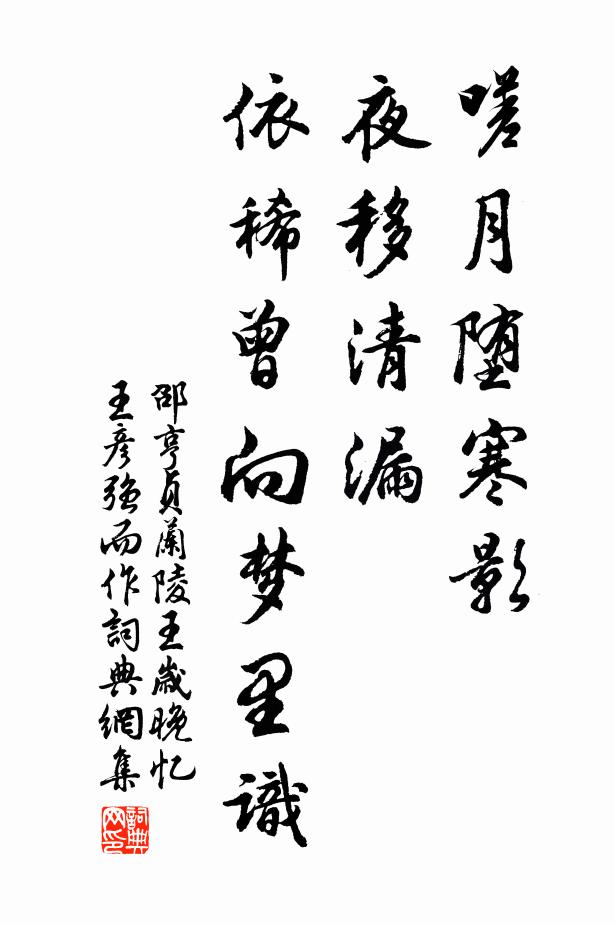 嗟月堕寒影
夜移清漏
依稀曾向梦里識
邵亨貞蘭陵王歲晚忆
王彦強而作詞典網集
詞典
网印